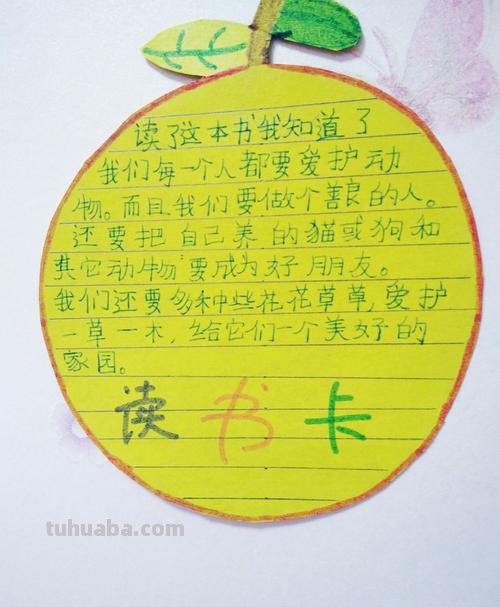 读了这本书我知道了
我们每一个人都要爱护动
物。而且我们要做个善良的人。
还要把自己养的猫或狗和
其它动物要成为好朋友。
我们还要多种些花花草草,爱护
一草一木,给它们一个美好的
家园。
读书卡
tuhuaba.com